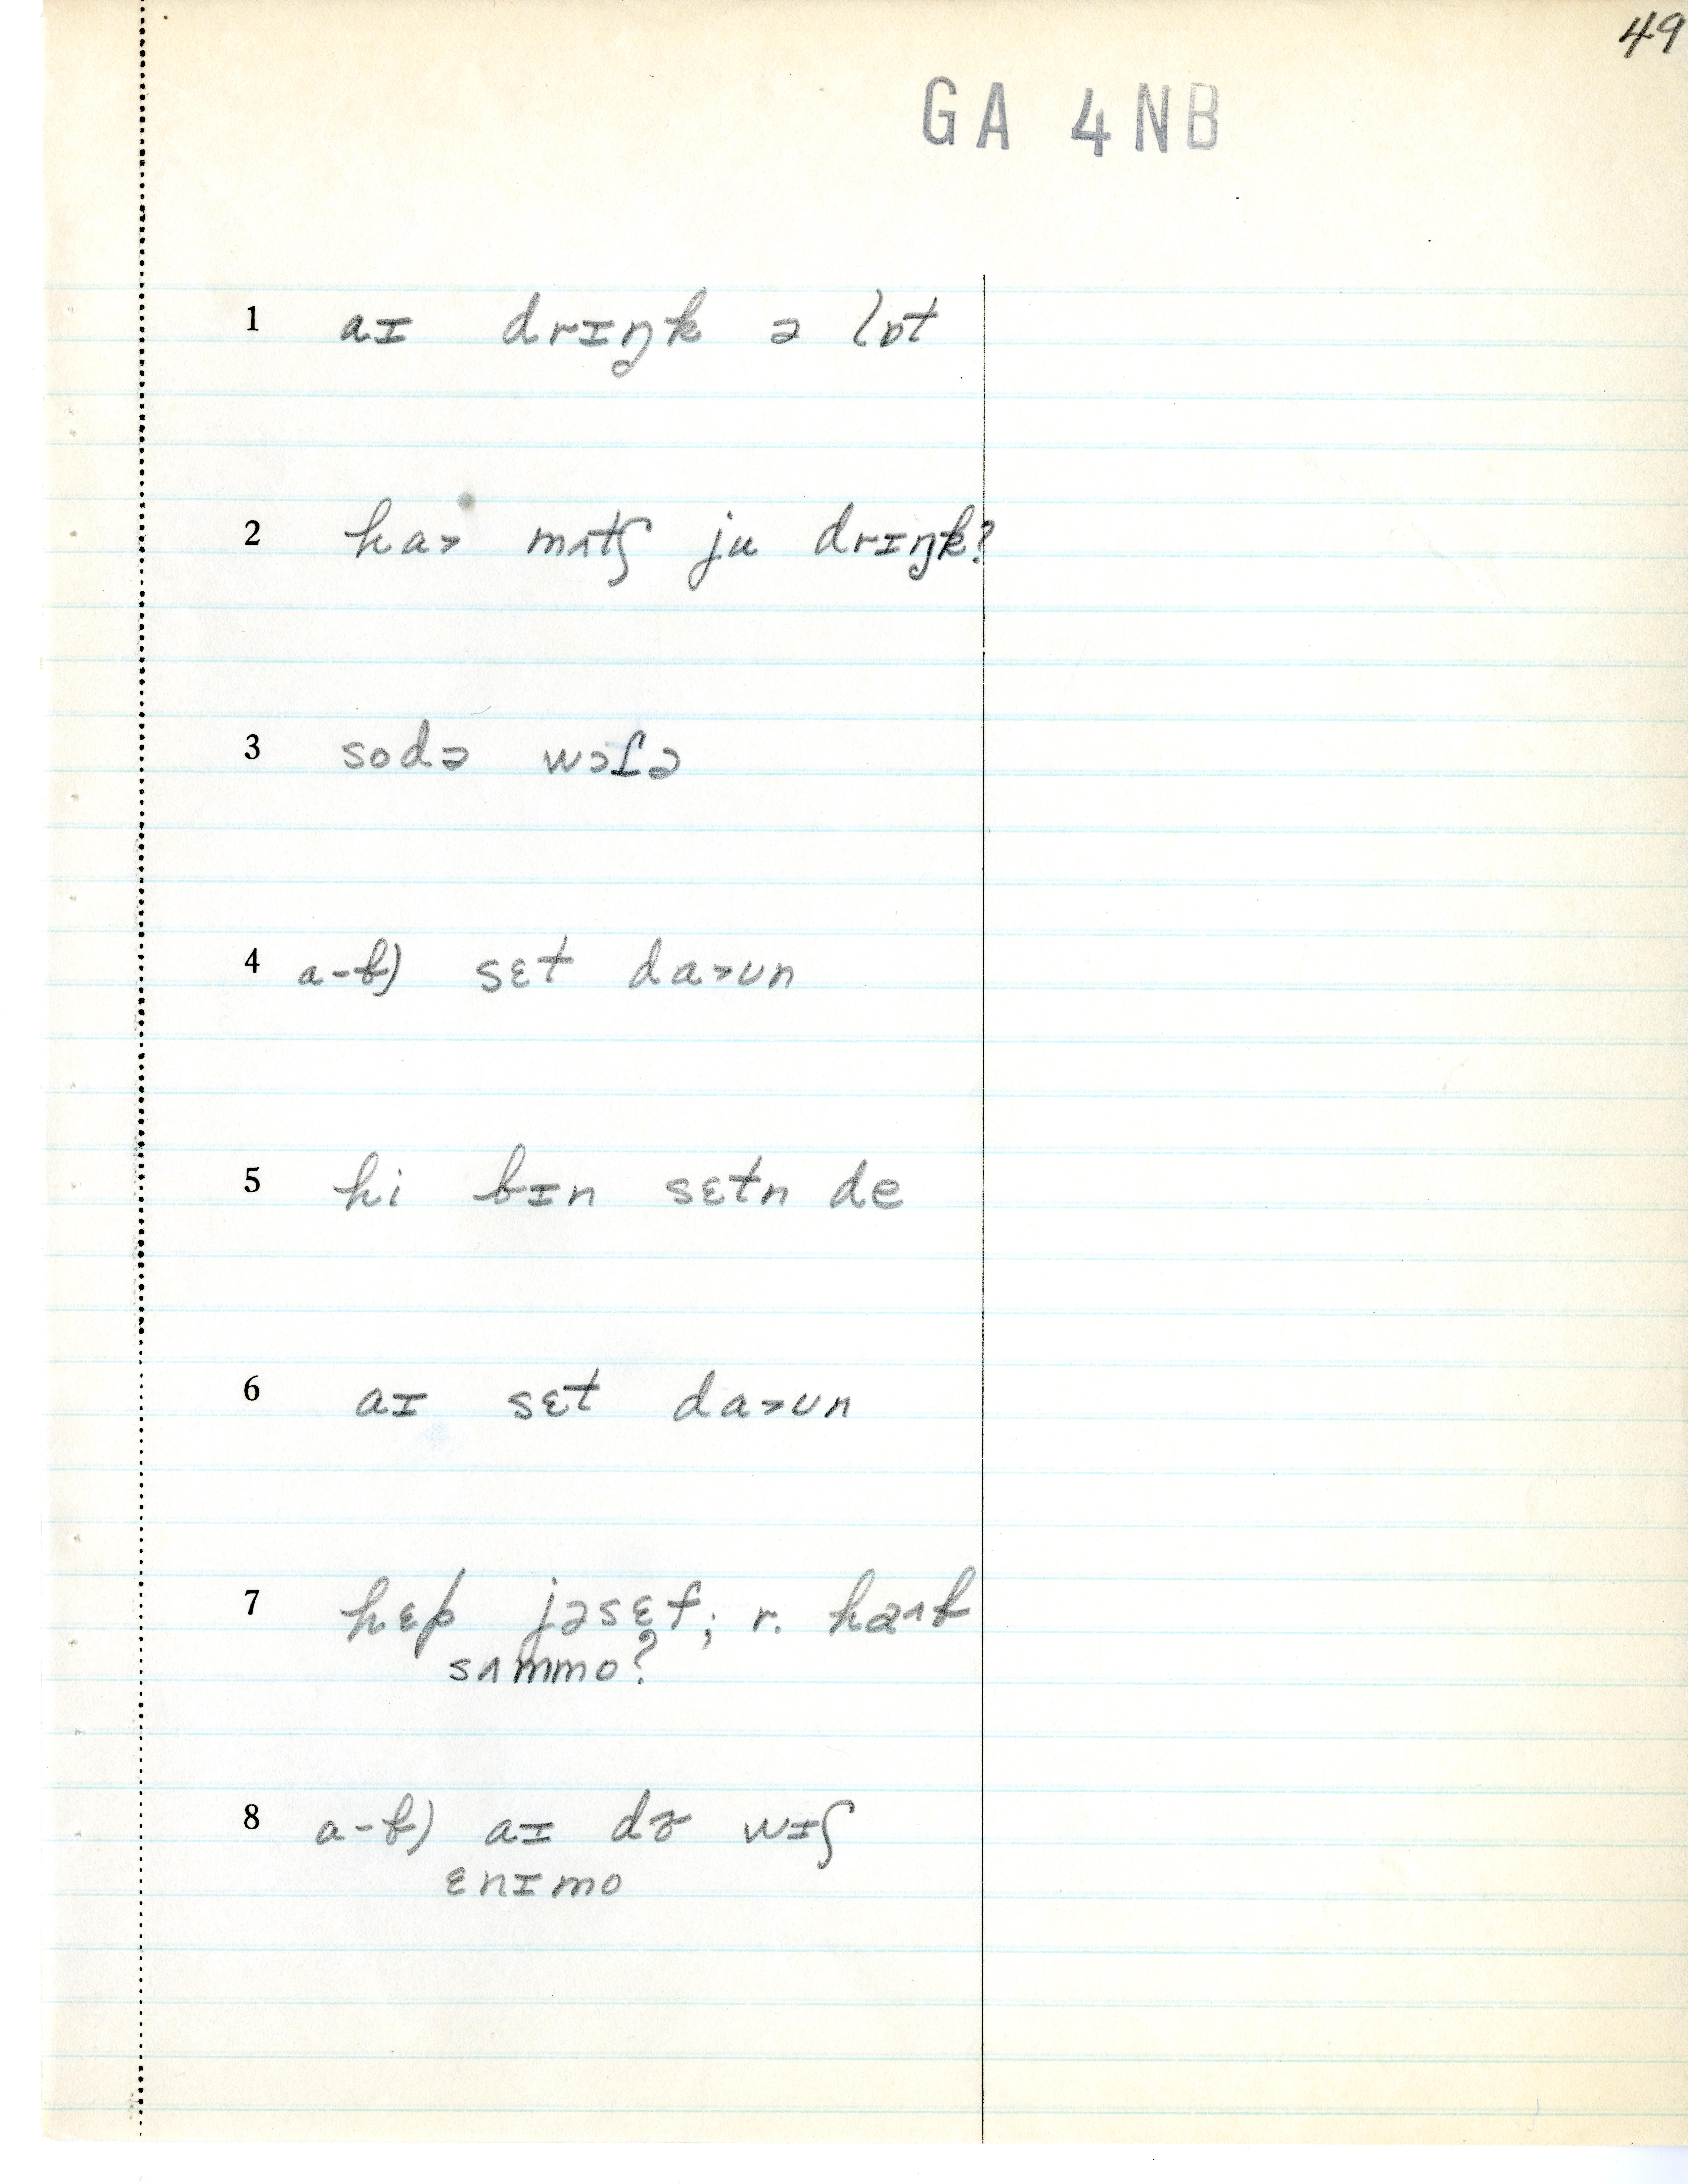 49
GA 4NB
1 aɪ drɪŋk ə lɒt
2 ha> mʌtʃ ju drɪŋk?
3 sodə wɔʃə
4 a-b) sɛt da>ʊn
5 hi bɪn sɛtn de
6 aɪ sɛt da>ʊn
7 hɛp jəsɛf; r. haʌb
sʌmmo?
8 a-b) aɪ də wɪʃ
ɛnɪmo